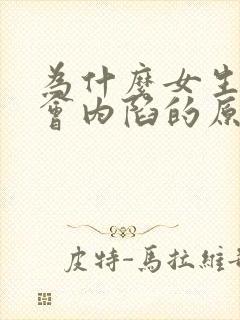 為什麼女生
會內陷的原
皮特-馬拉維